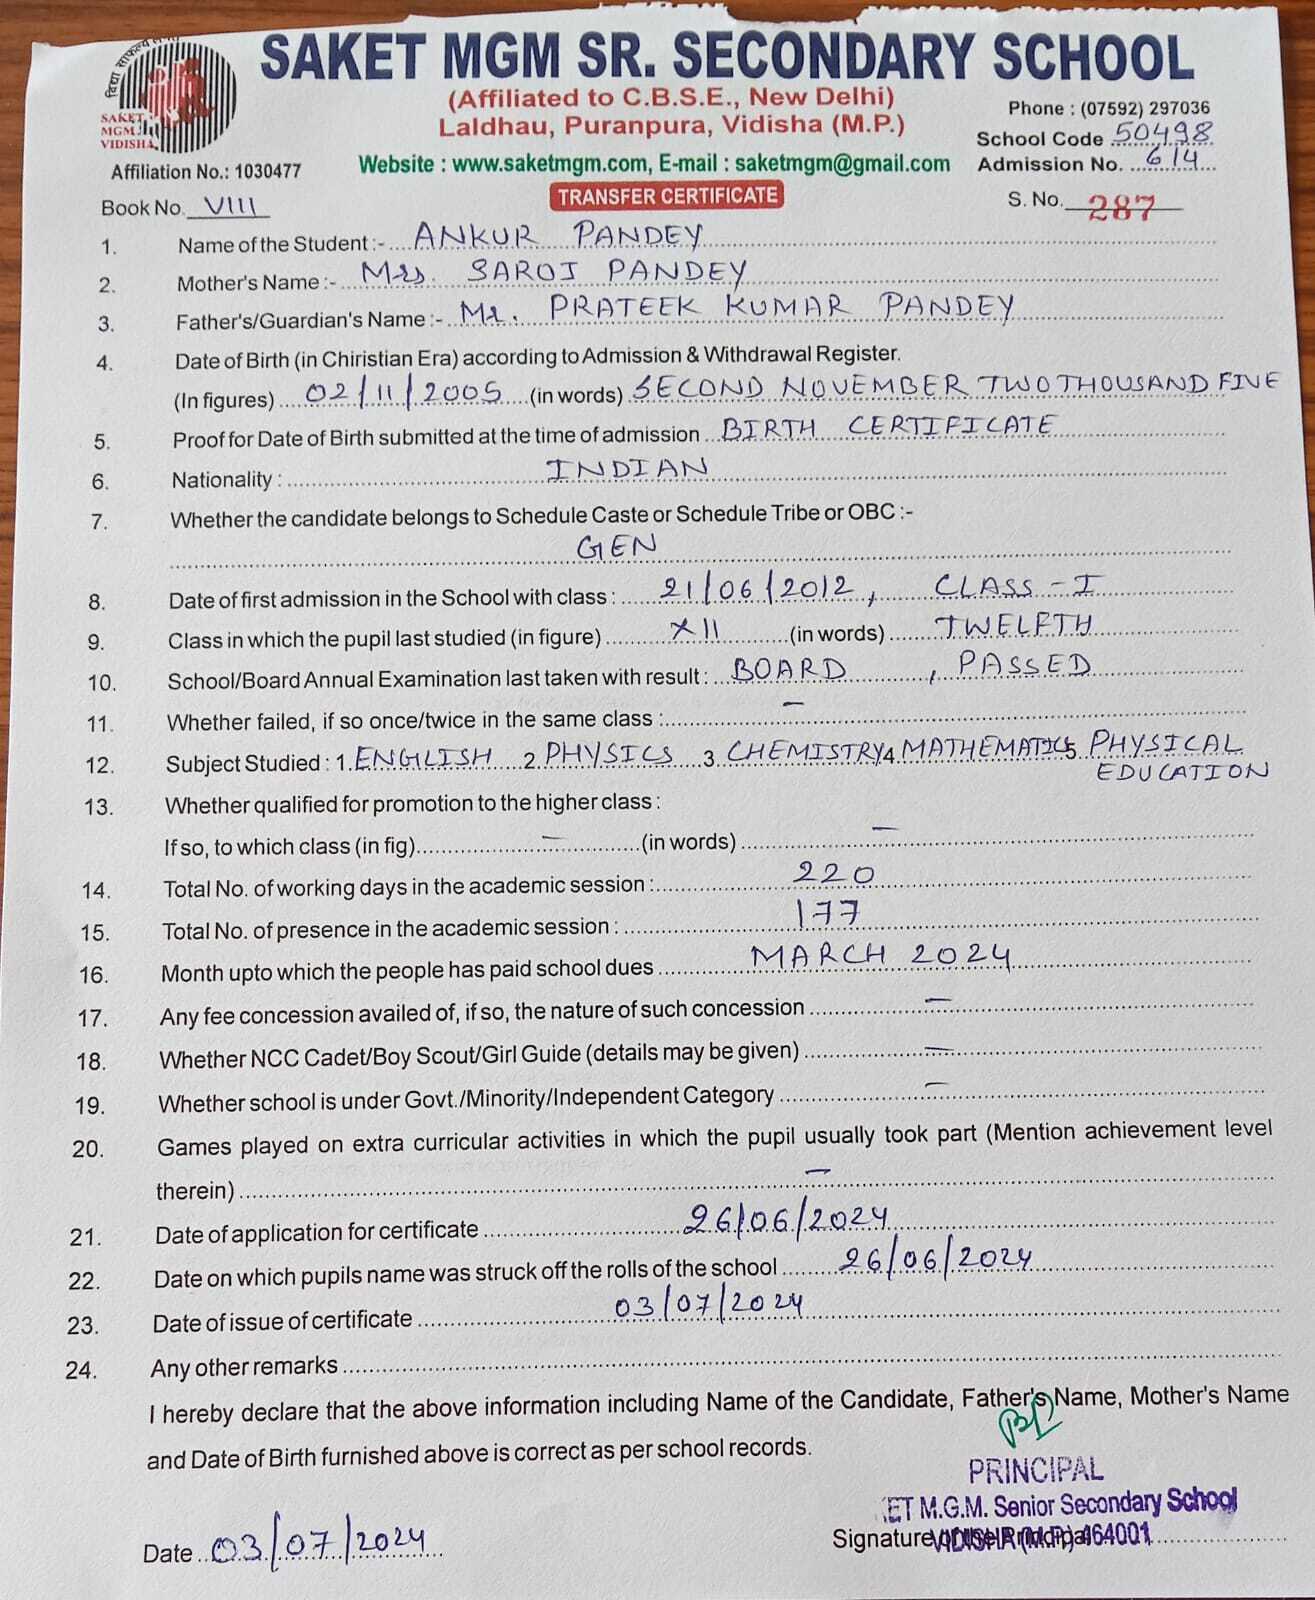 SAKET MGM SR. SECONDARY SCHOOL
(Affiliated to C.B.S.E., New Delhi)
Laldhau, Puranpura, Vidisha (M.P.)
विद्या
SAKET
MGM
VIDISHA
Phone : (07592) 297036
School Code 50498
Affiliation No.: 1030477
Website : www.saketmgm.com, E-mail : saketmgm@gmail.com
Admission No. 614
Book No. VIII
TRANSFER CERTIFICATE
S. No. 287
1. Name of the Student :- ANKUR PANDEY
2. Mother's Name :- Mrs. SAROJ PANDEY
3. Father's/Guardian's Name :- Mr. PRATEEK KUMAR PANDEY
4. Date of Birth (in Chiristian Era) according to Admission & Withdrawal Register.
(In figures) 02/11/2005 (in words) SECOND NOVEMBER TWO THOUSAND FIVE
5. Proof for Date of Birth submitted at the time of admission BIRTH CERTIFICATE
6. Nationality : INDIAN
7. Whether the candidate belongs to Schedule Caste or Schedule Tribe or OBC :-
GEN
8. Date of first admission in the School with class : 21/06/2012, CLASS - I
9. Class in which the pupil last studied (in figure) XII (in words) TWELFTH
10. School/Board Annual Examination last taken with result : BOARD , PASSED
11. Whether failed, if so once/twice in the same class : –
12. Subject Studied : 1. ENGLISH 2 PHYSICS 3 CHEMISTRY 4 MATHEMATICS 5. PHYSICAL
EDUCATION
13. Whether qualified for promotion to the higher class :
If so, to which class (in fig) – (in words) –
14. Total No. of working days in the academic session : 220
15. Total No. of presence in the academic session : 177
16. Month upto which the people has paid school dues MARCH 2024
17. Any fee concession availed of, if so, the nature of such concession –
18. Whether NCC Cadet/Boy Scout/Girl Guide (details may be given) –
19. Whether school is under Govt./Minority/Independent Category –
20. Games played on extra curricular activities in which the pupil usually took part (Mention achievement level
therein) –
21. Date of application for certificate 26/06/2024
22. Date on which pupils name was struck off the rolls of the school 26/06/2024
23. Date of issue of certificate 03/07/2024
24. Any other remarks
I hereby declare that the above information including Name of the Candidate, Father's Name, Mother's Name
and Date of Birth furnished above is correct as per school records.
PRINCIPAL
ET M.G.M. Senior Secondary School
VIDISHA (M.P.) 464001
Signature of the Principal
Date 03/07/2024